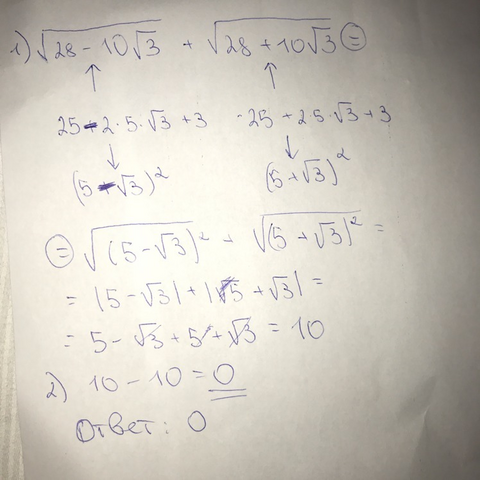 1) √(28 - 10√3) + √(28 + 10√3) =
↑ ↑
25 - 2·5·√3 + 3 25 + 2·5·√3 + 3
↓ ↓
(5 - √3)² (5 + √3)²
= √(5 - √3)² + √(5 + √3)² =
= |5 - √3| + |5 + √3| =
= 5 - √3 + 5 + √3 = 10
2) 10 - 10 = 0
Ответ: 0